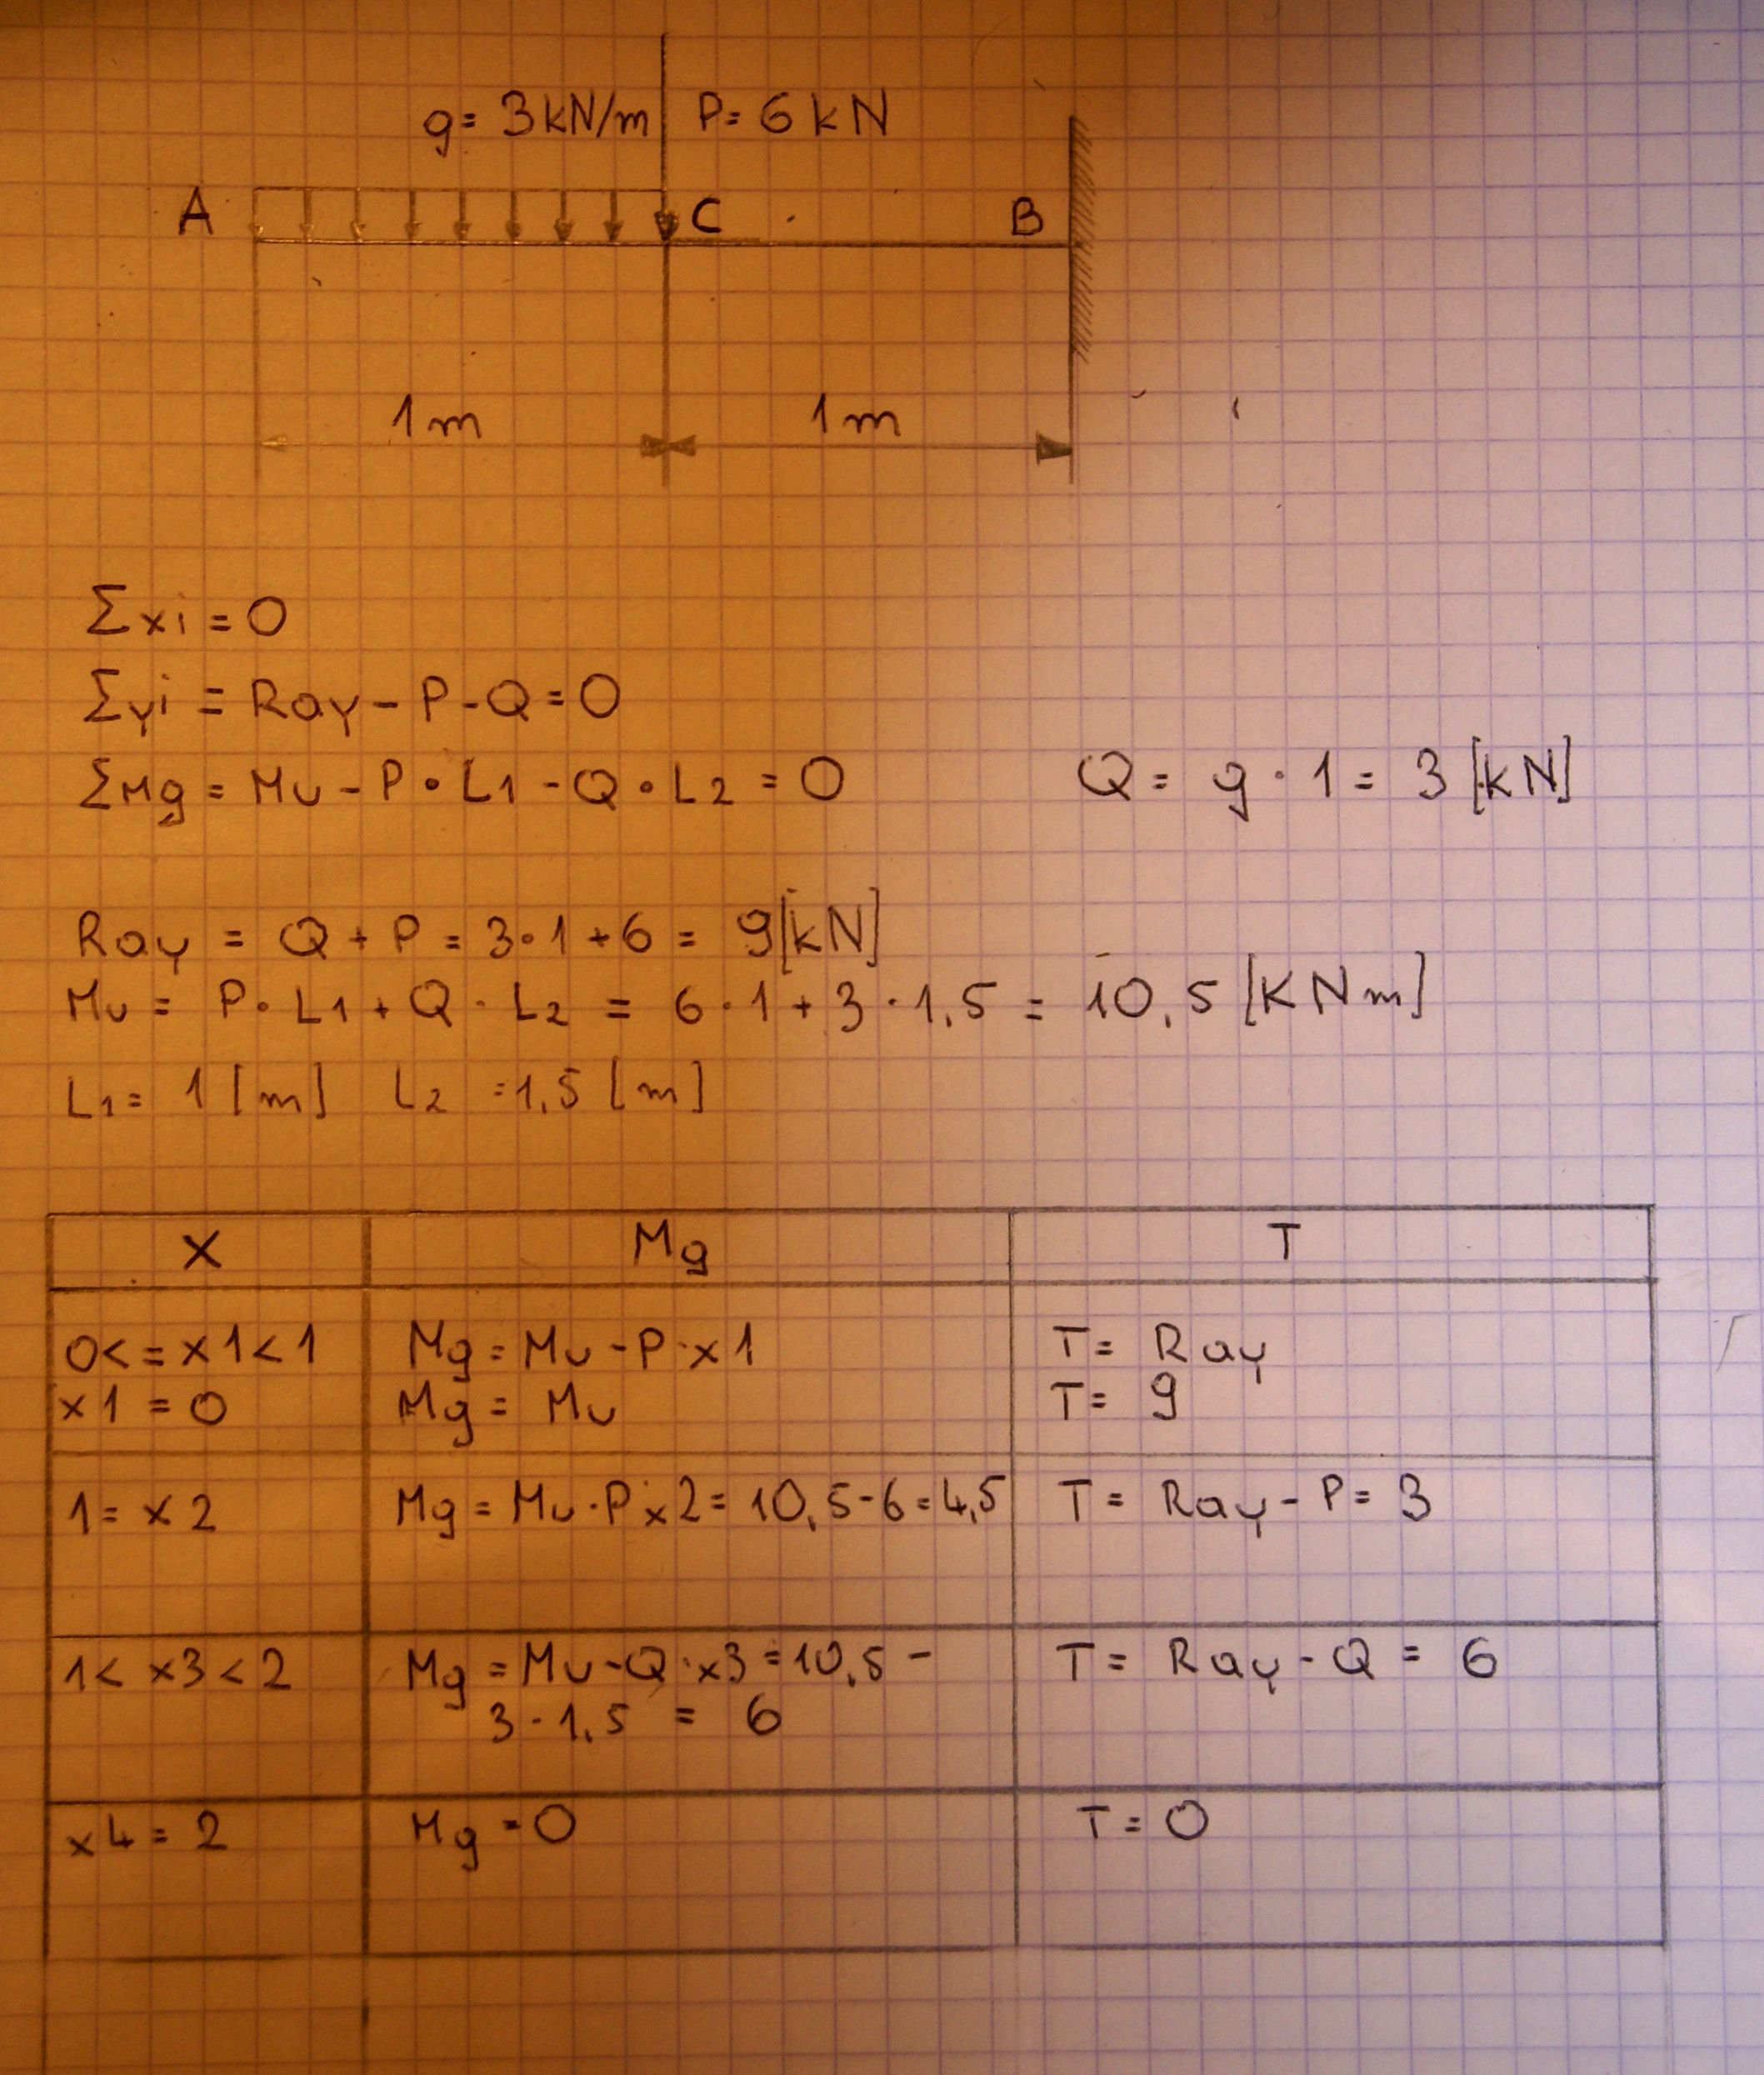 g= 3kN/m P= 6kN
A C B
1m 1m
Σxi=0
Σyi = Ray - P - Q=0
ΣMg = Mu - P • L1 - Q • L2 = 0 Q= g · 1= 3 [kN]
Ray = Q + P = 3·1+6= 9[kN]
Mu = P· L1 + Q · L2 = 6·1+3·1,5 = 10,5 [KNm]
L1= 1 [m] L2 =1,5 [m]
X Mg T
0<=x1<1 Mg=Mu-P·x1 T= Ray
x1=0 Mg= Mu T= 9
1= x2 Mg=Mu·Px2=10,5-6=4,5 T= Ray-P=3
1< x3<2 Mg=Mu-Q·x3=10,5- T= Ray-Q= 6
3·1,5 = 6
x4=2 Mg=0 T=0